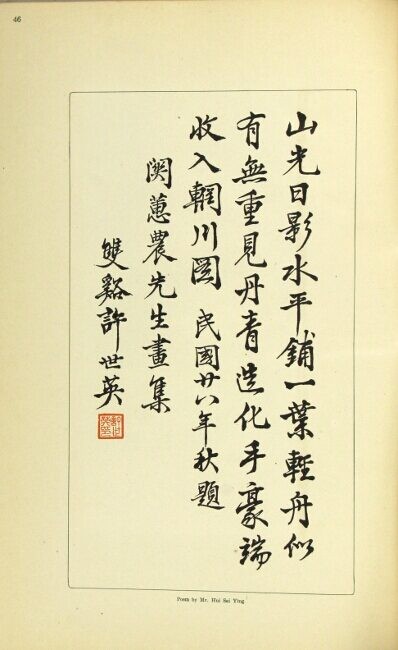 46
山光日影水平鋪一葉輕舟似
有無重見丹青造化手豪端
收入輞川圖 民國廿八年秋題
関蕙農先生畫集
雙谿許世英
Poem by Mr. Hui Sei Ying